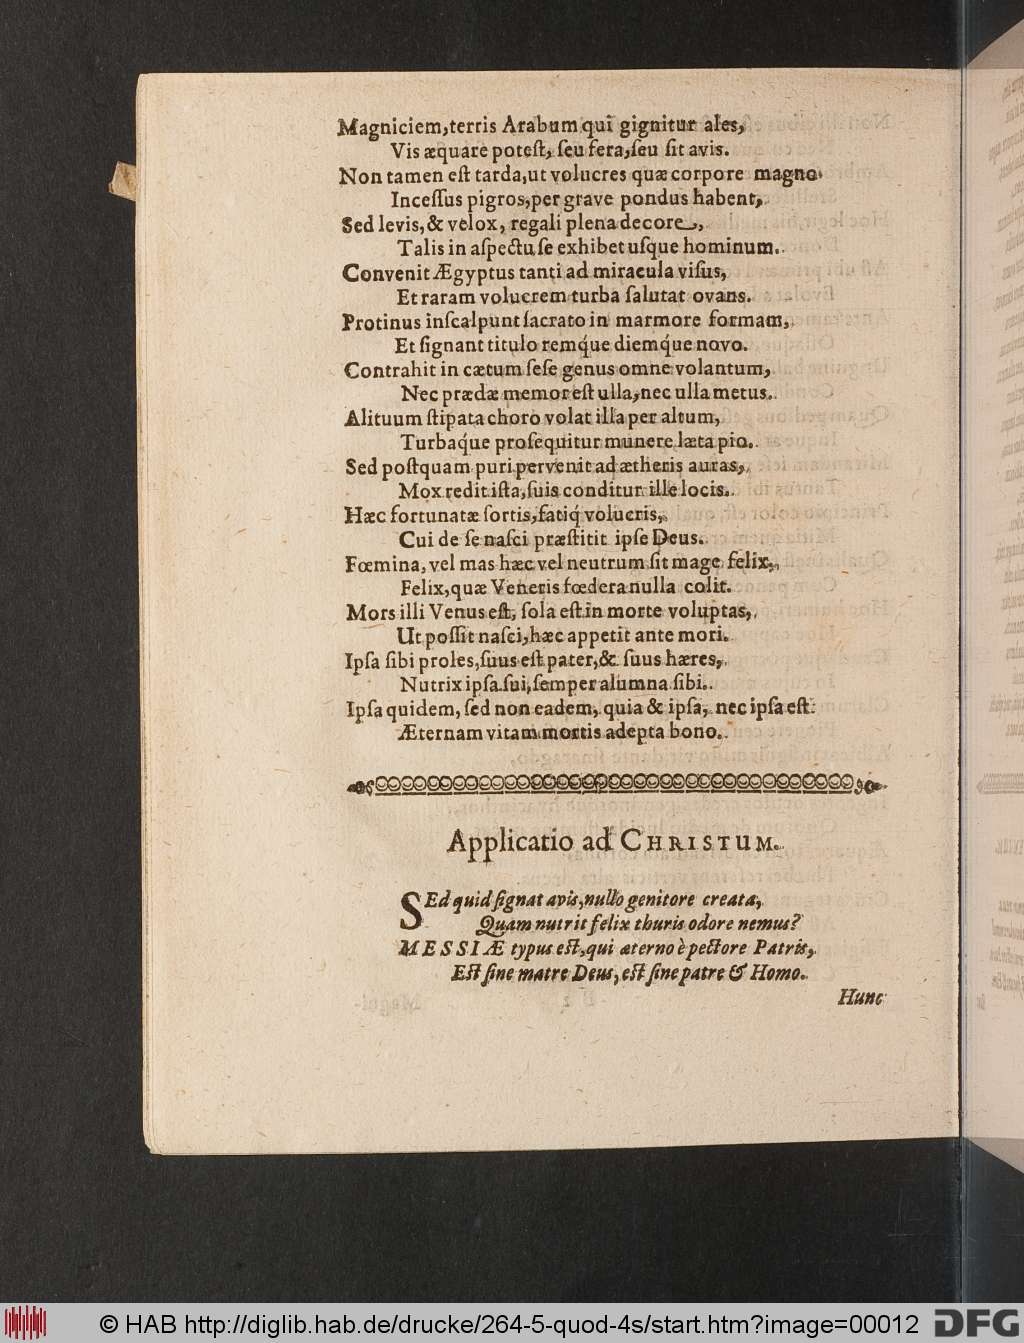 Magniciem, terris Arabum qui gignitur ales,
Vis æquare poteſt, ſeu fera, ſeu ſit avis.
Non tamen eſt tarda, ut volucres quæ corpore magno
Inceſſus pigros, per grave pondus habent,
Sed levis, & velox, regali plena decore,
Talis in aſpectu ſe exhibet uſque hominum.
Convenit Ægyptus tanti ad miracula viſus,
Et raram volucrem turba ſalutat ovans.
Protinus inſcalpunt ſacrato in marmore formam,
Et ſignant titulo remq́ue diemq́ue novo.
Contrahit in cætum ſeſe genus omne volantum,
Nec prædæ memor eſt ulla, nec ulla metus.
Alituum ſtipata choro volat illa per altum,
Turbaq́ue proſequitur munere læta pio.
Sed poſtquam puri pervenit ad ætheris auras,
Mox redit iſta, ſuis conditur ille locis.
Hæc fortunatæ ſortis, fatiq́ volucris,
Cui de ſe naſci præſtitit ipſe Deus.
Fœmina, vel mas hæc vel neutrum ſit mage felix,
Felix, quæ Veneris fœdera nulla colit.
Mors illi Venus eſt, ſola eſt in morte voluptas,
Ut poſſit naſci, hæc appetit ante mori.
Ipſa ſibi proles, ſuus eſt pater, & ſuus hæres,
Nutrix ipſa ſui, ſemper alumna ſibi.
Ipſa quidem, ſed non eadem, quia & ipſa, nec ipſa eſt:
Æternam vitam mortis adepta bono.
Applicatio ad CHRISTUM.
SEd quid ſignat avis, nullo genitore creata,
Quam nutrit felix thuris odore nemus?
MESSIÆ typus eſt, qui æterno è pectore Patris,
Eſt ſine matre Deus, eſt ſine patre & Homo.
Hunc
© HAB http://diglib.hab.de/drucke/264-5-quod-4s/start.htm?image=00012
DFG